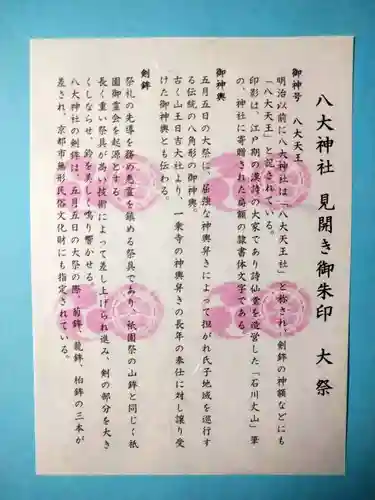 八大神社 見開き御朱印 大祭
御神号 八大天王
明治以前に八大神社は「八大天王社」と称され、剣鉾の神額などにも
「八大天王」と記されている。
印影は、江戸期の漢詩の大家であり詩仙堂を造営した「石川丈山」筆
の、神社に寄贈された扁額の隷書体文字である。
御神輿
五月五日の大祭に、屈強な神輿舁きによって担がれ氏子地域を巡行す
る伝統の八角形の御神輿。
古く山王日吉大社より、一乗寺の神輿舁きの長年の奉仕に対し譲り受
けた御神輿とも伝わる。
剣鉾
祭礼の先導を務め悪霊を鎮める祭具であり、祇園祭の山鉾と同じく祇
園御霊会を起源とする。
長く重い祭具が高い技術によって差し上げられ進み、剣の部分を大き
くしならせ、鈴を美しく鳴り響かせる。
八大神社の剣鉾は、五月五日の大祭の際、菊鉾、龍鉾、柏鉾の三本が
差され、京都市無形民俗文化財にも指定されている。